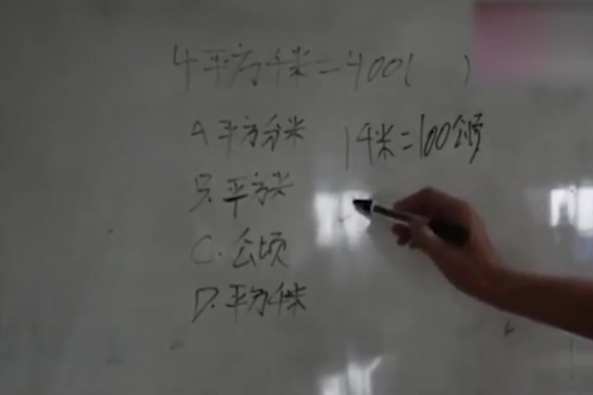 4平方千米=400( )
A.平方分米
1千米=100公顷
B.平方米
C.公顷
D.平方千米